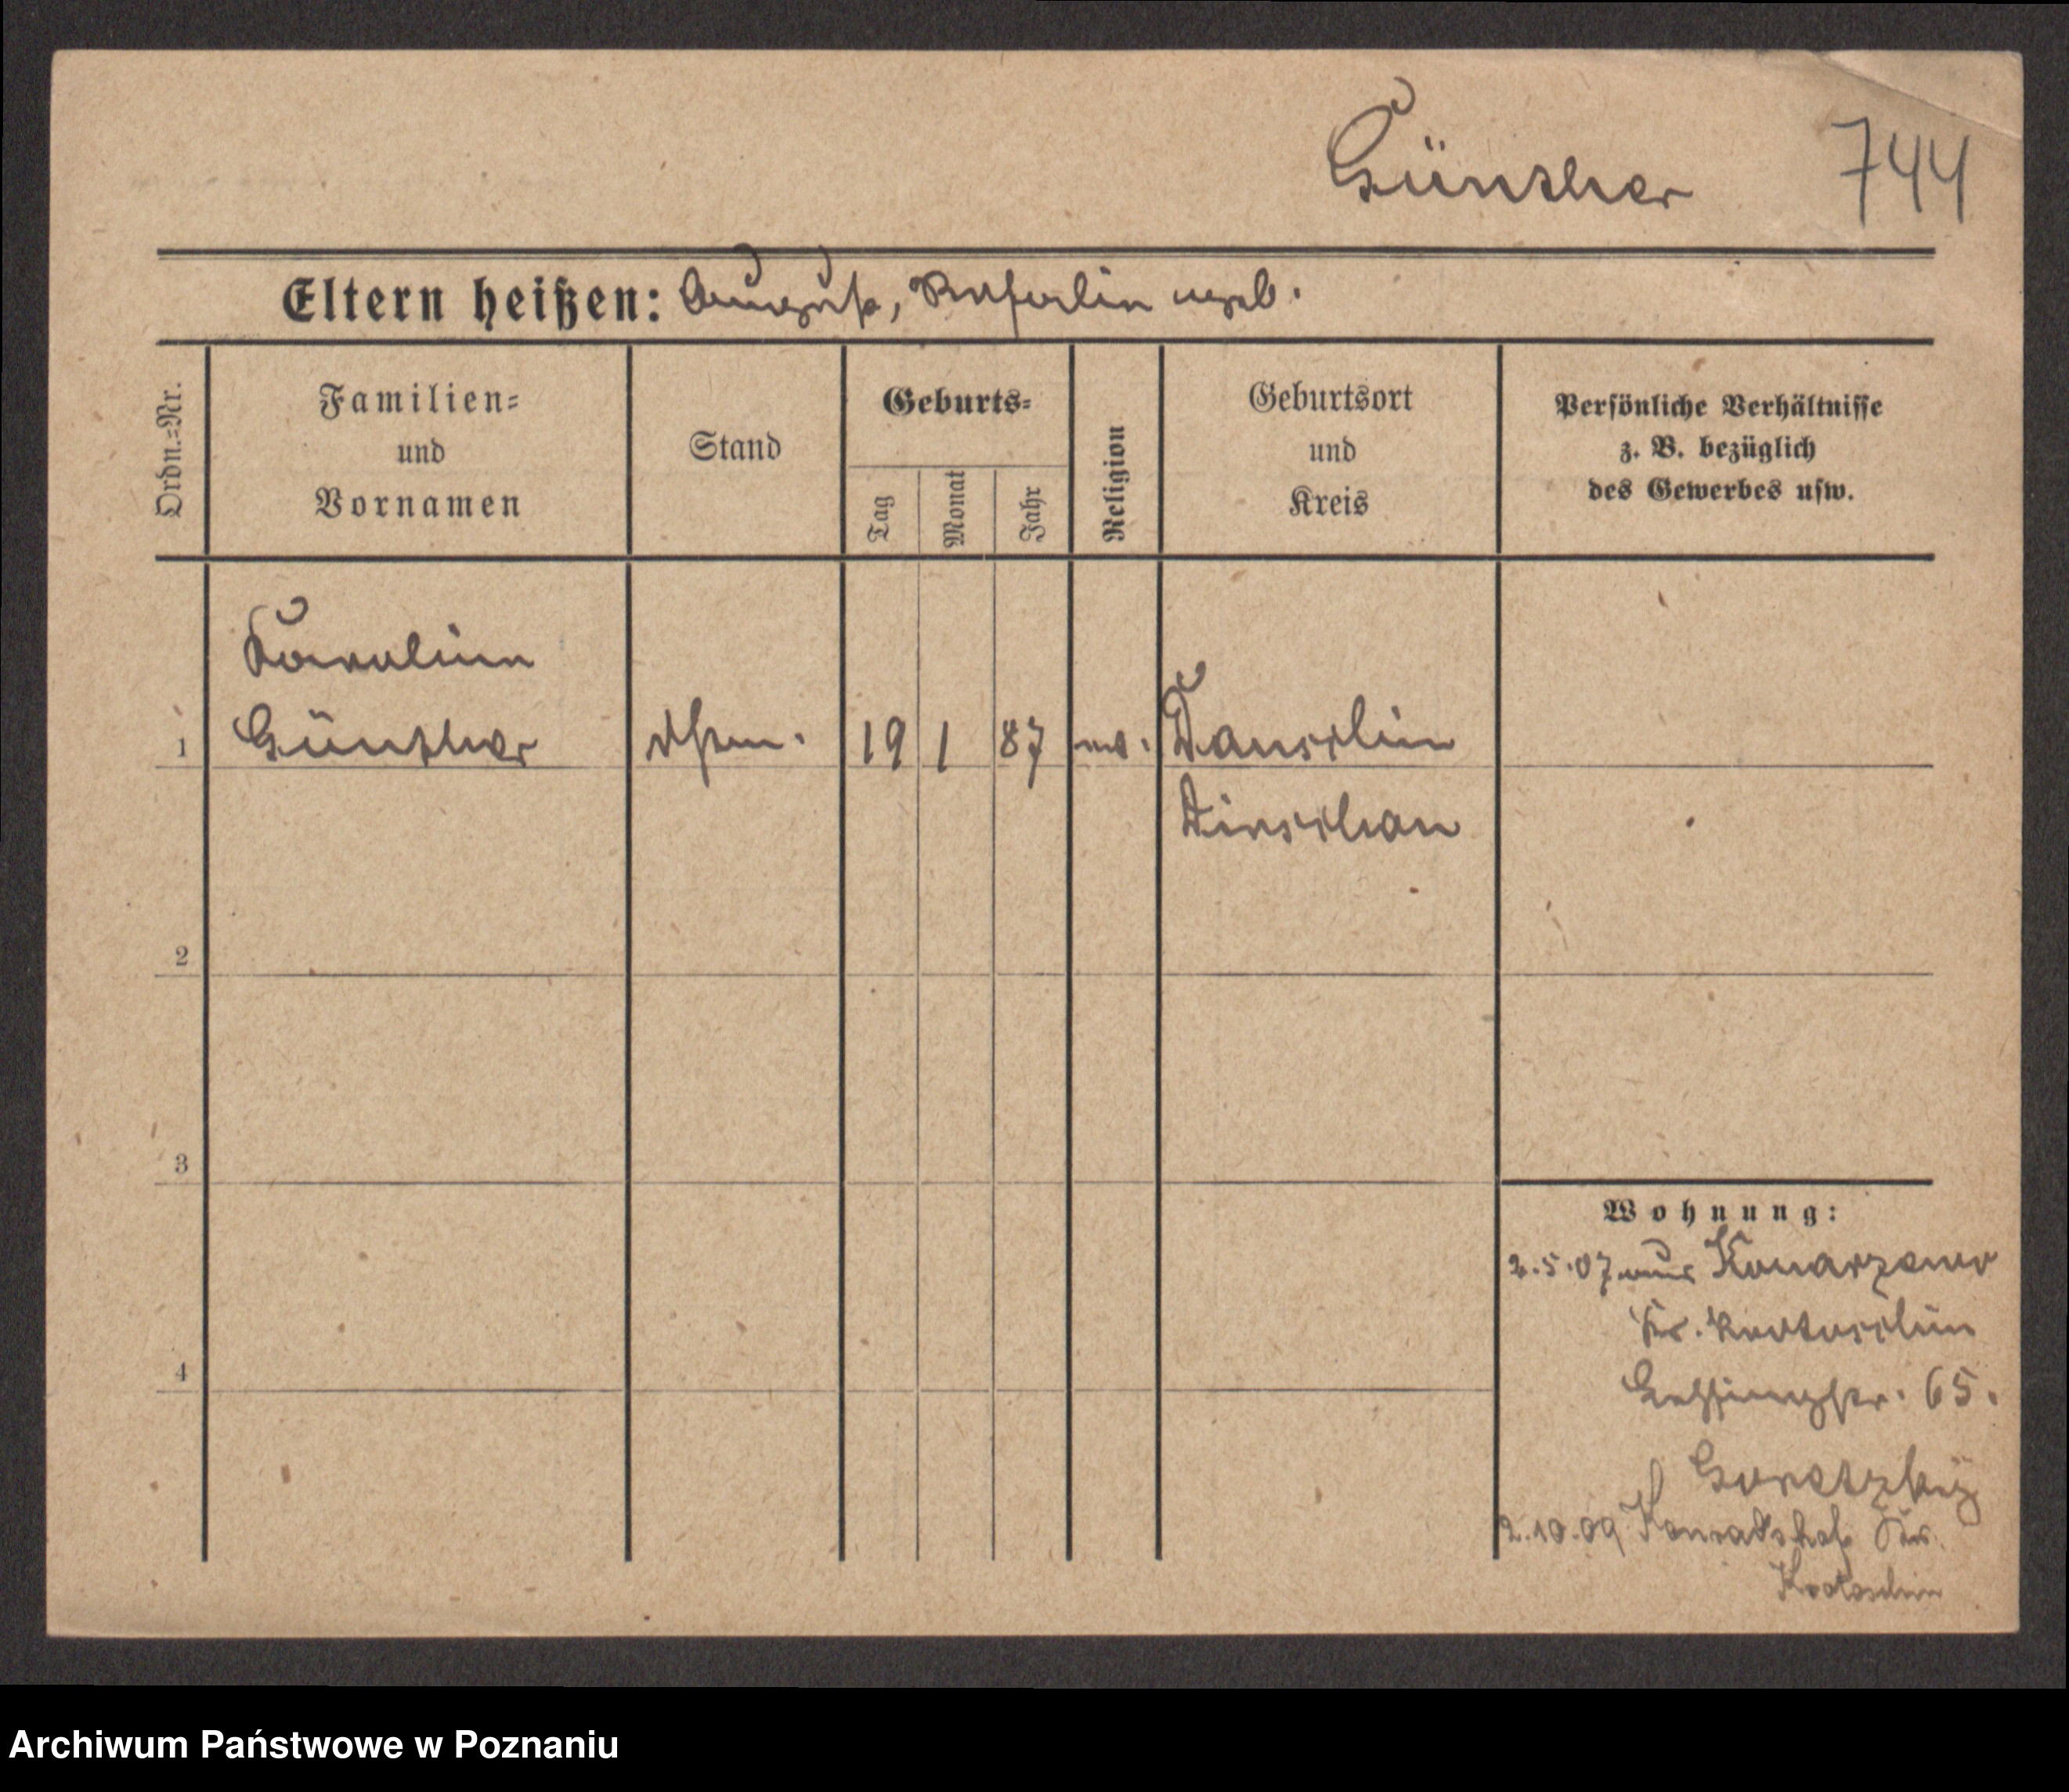 Günther 744
Eltern heißen: August, Rosalin ungeb.
Ordn.=Nr.
Familien=
und
Vornamen
Stand
Geburts=
Tag
Monat
Jahr
Religion
Geburtsort
und
Kreis
Persönliche Verhältnisse
z. B. bezüglich
des Gewerbes usw.
Karoline
1 Günther 19 1 87 ev.
Dirschau
2
3
4
Wohnung:
2.5.07 aus Konarzewo
Kr. Krotoschin
Lessingstr. 65.
Goretzky
2.10.09 Konradshof Kr.
Krotoschin
Archiwum Państwowe w Poznaniu